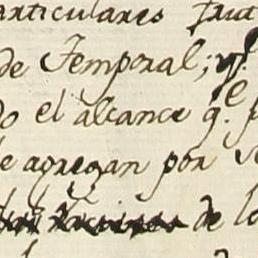 articulares
de Temporal; y.
do el alcance q.e
e agregan por
de lo